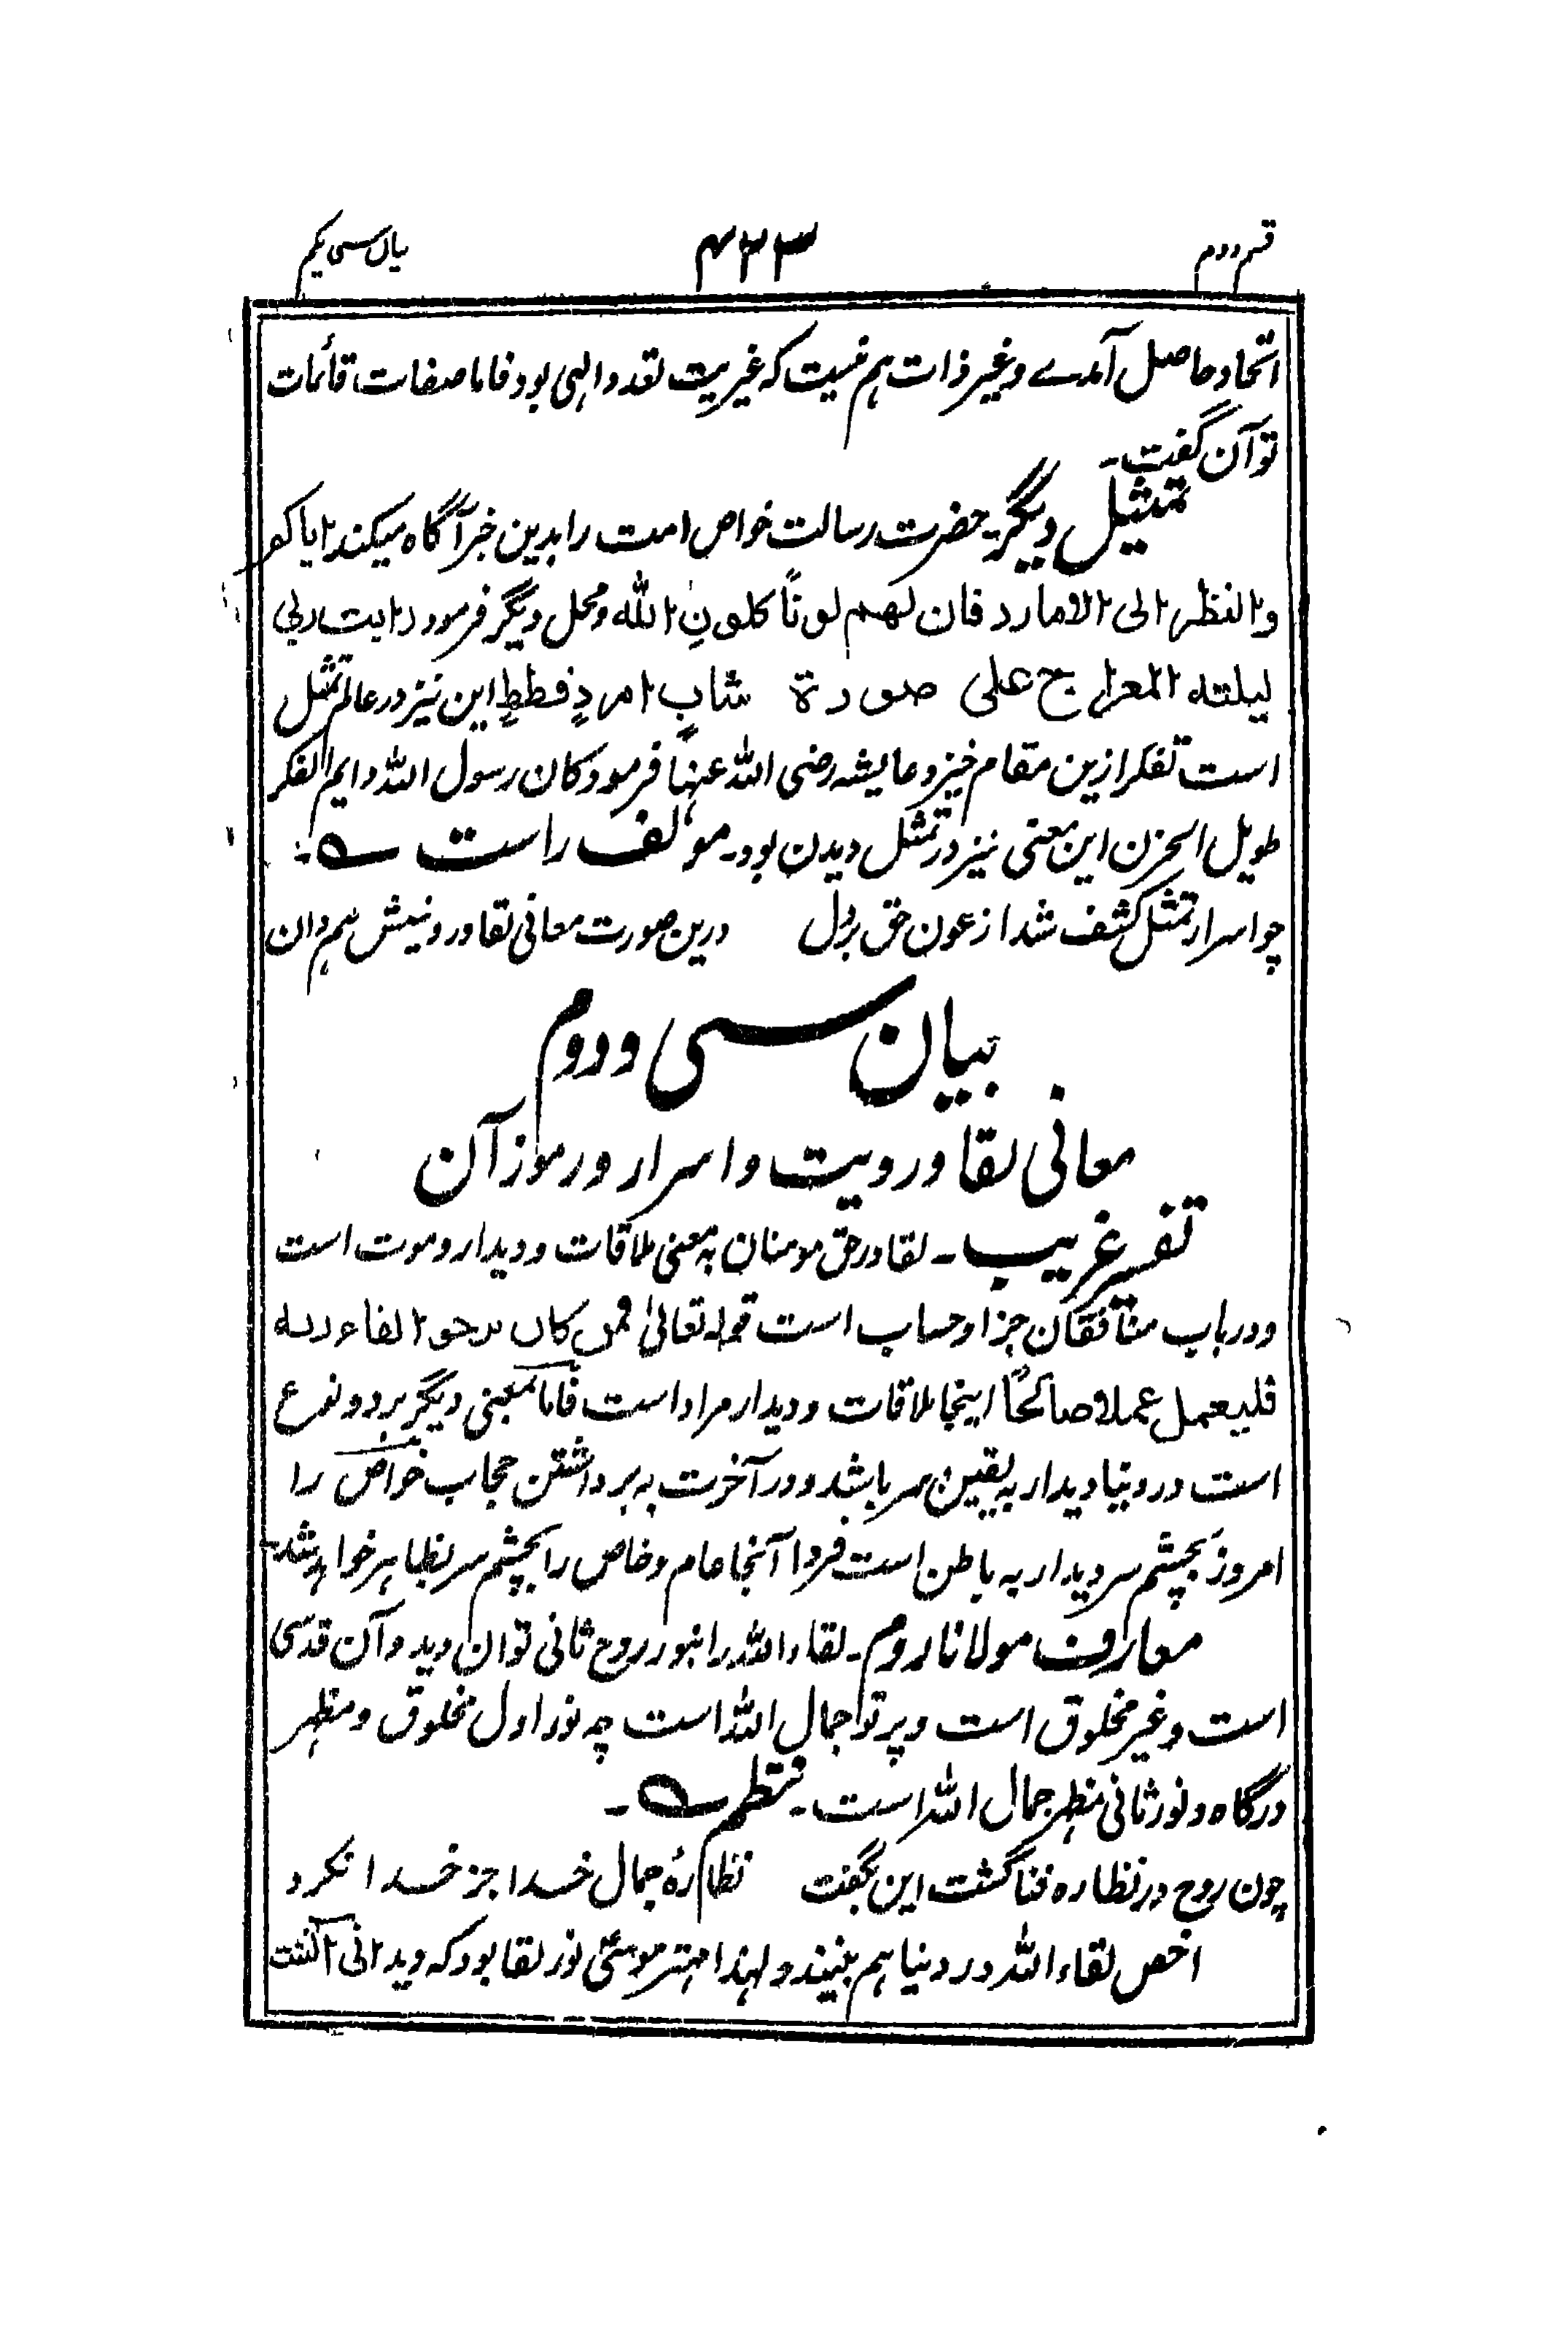 قسم دوم ۴۳۳ بیان سی یکم
اتحاد حاصل آمدے وغیر ذات ہم نیست کہ غیریت تعدد الہی بود فاما صفات قائمات
توان گفت۔
تمثیل دیگر۔ حضرت رسالت خواص امت را بدین خبر آگاہ میکند ایاکو
والنظر الی الامارد فان لهم لونًا کلونِ الله ومحل دیگر فرمود رایت ربی
لیلتہ المعراج علی صورة شابٍ امردٍ قططٍ این نیز در عالم تمثل
است تفکر ازین مقام خیزد عایشہ رضی اللہ عنہا فرمود کان رسول اللہ دایم الفکر
طویل الحزن این معنی نیز در تمثل دیدن بود۔ مولف راست ؎
چو اسرار تمثل کشف شد از عون حق بر دل درین صورت معانی لقا و رونیش ہم دان
بیان سی ودوم
معانی لقا ورویت واسرار ورموز آن
تفسیر غریب۔ لقا در حق مومنان بہ معنی ملاقات ودیدار وموت است
ودر باب منافقان جزا وحساب است قولہ تعالیٰ فمن کان یرجوا لقاء ربہ
فلیعمل عملا صالحًا اینجا ملاقات ودیدار مراد است فاما بمعنی دیگر بر دو نوع
است در دنیا دیدار بہ یقین سر باشد ودر آخرت بہ برداشتن حجاب خواص را
امروز بچشم سر دیدار بہ باطن است فردا آنجا عام وخاص را بچشم سر بظاہر خواہد شد۔
معارف مولانا روم۔ لقاء اللہ را بنور روح ثانی توان دید وآن قدسی
است وغیر مخلوق است وپرتو جمال اللہ است چہ نور اول مخلوق ومظہر
درگاہ ونور ثانی مظہر جمال اللہ است۔ نظم ؎۔
چون روح در نظارہ فنا گشت این بگفت نظارۂ جمال خدا جز خدا نکرد
اخص لقاء اللہ در دنیا ہم بینند ولہذا مہتر موسیٰ نور لقا بود کہ دید انی آنست